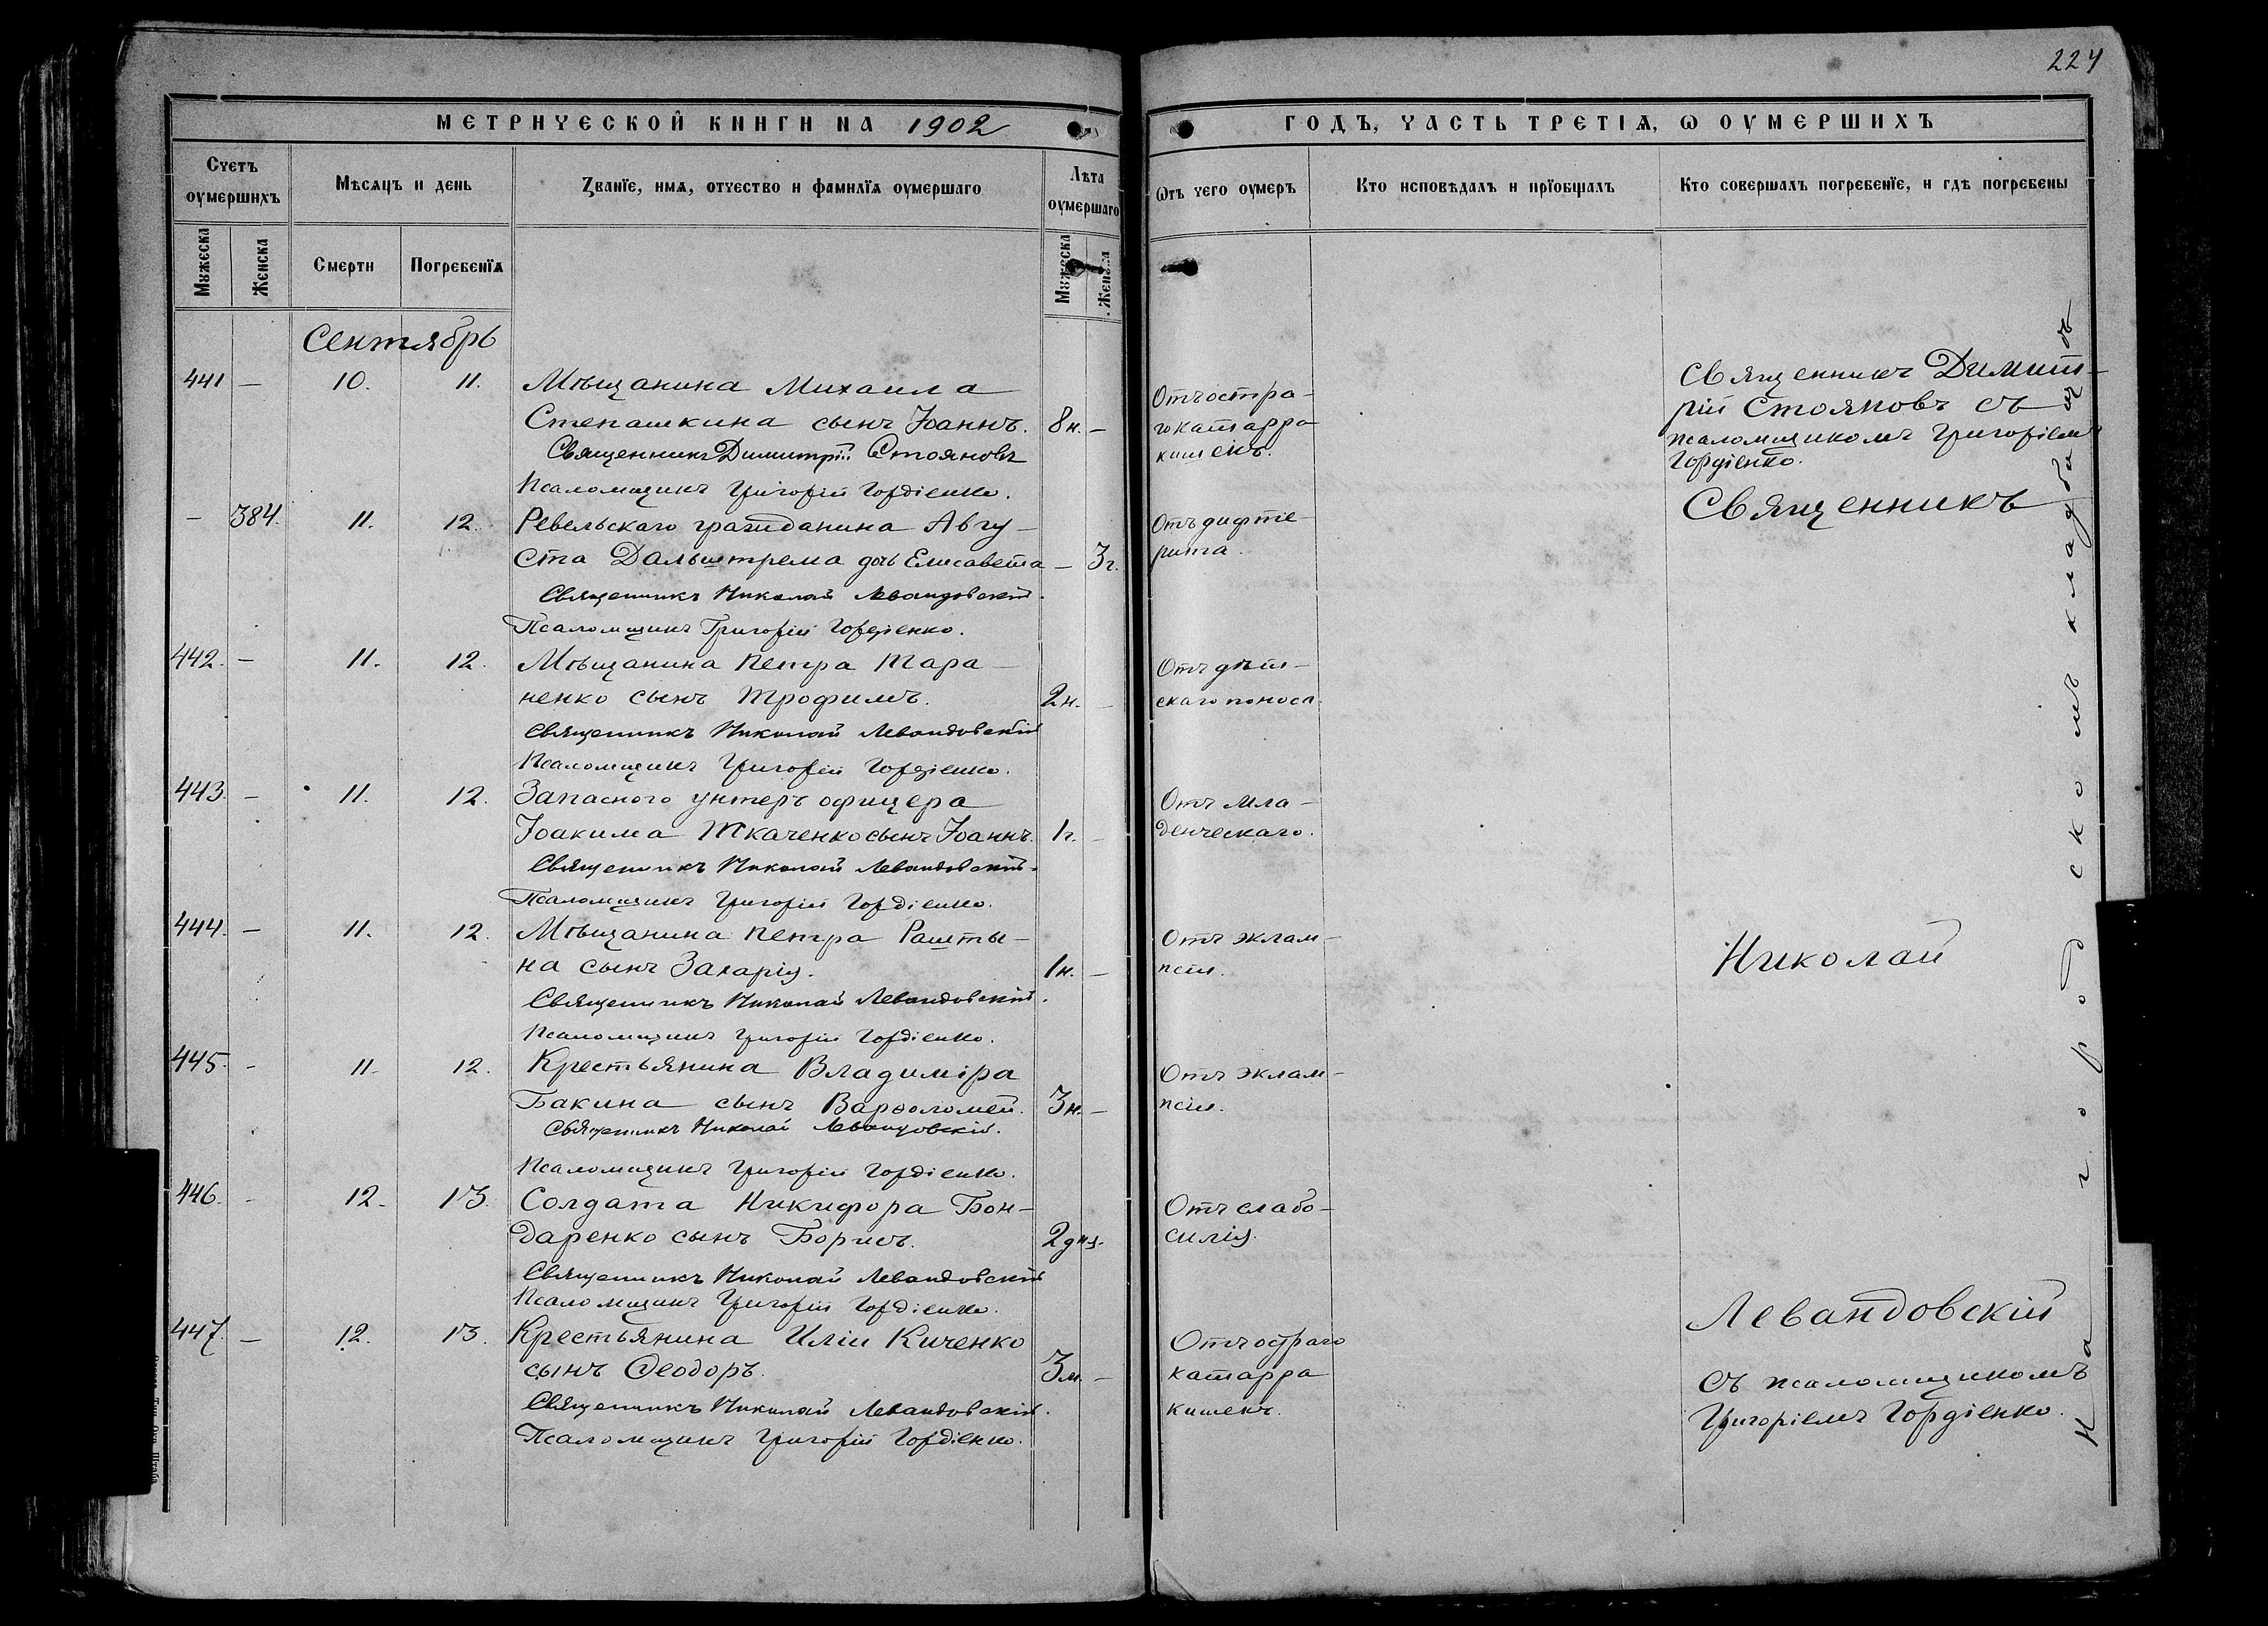 224
МЕТРИЧЕСКОЙ КНИГИ НА 1902
ГОДЪ, ЧАСТЬ ТРЕТІЯ, Ѡ ОУМЕРШИХЪ
Счетъ оумершихъ
Мѣсяцъ и день
Званїе, имя, отчество и фамилїя оумершаго
Лѣта оумершаго
Ѿтъ чего оумеръ
Кто исповѣдалъ и прїобщалъ
Кто совершалъ погребенїе, и гдѣ погребены
Мужеска
Женска
Смерти
Погребенїя
Мужеска
Женска
Сентябрь
441 — 10. 11. Мѣщанина Михаила
Степашкина сынъ Іоаннъ. 8 н. —
Священникъ Димитрій Стояновъ
Псаломщикъ Григорій Гордіенко.
Отъ остра-
го катарра
кишекъ.
Священникъ Димит-
рій Стояновъ съ
псаломщикомъ Григоріемъ
Гордіенко.
— 384. 11. 12. Ревельскаго гражданина Авгу-
ста Дальштрема дочь Елисавета — 3 г.
Священникъ Николай Левандовскій.
Псаломщикъ Григорій Гордіенко.
Отъ дифте-
рита.
Священникъ
442. — 11. 12. Мѣщанина Петра Тара-
ненко сынъ Трофимъ. 2 н. —
Священникъ Николай Левандовскій
Псаломщикъ Григорій Гордіенко.
Отъ дѣт-
скаго поноса.
443. — 11. 12. Запасного унтеръ офицера
Іоакима Ткаченко сынъ Іоаннъ. 1 г. —
Священникъ Николай Левандовскій.
Псаломщикъ Григорій Гордіенко.
Отъ мла-
денческаго.
444. — 11. 12. Мѣщанина Петра Рашты-
на сынъ Захарія. 1 н. —
Священникъ Николай Левандовскій.
Псаломщикъ Григорій Гордіенко.
Отъ эклам-
псіи.
Николай
445. - 11. 12. Крестьянина Владиміра
Бакина сынъ Варѳоломей. 3 н. —
Священникъ Николай Левандовскій.
Псаломщикъ Григорій Гордіенко.
Отъ эклам-
псіи.
446. - 12. 13. Солдата Никифора Бон-
даренко сынъ Борисъ. 2 дня.
Священникъ Николай Левандовскій
Псаломщикъ Григорій Гордіенко.
Отъ слабо-
силія.
Левандовскій
447. — 12. 13. Крестьянина Иліи Киченко
сынъ Ѳеодоръ. 3 м. —
Священникъ Николай Левандовскій.
Псаломщикъ Григорій Гордіенко.
Отъ остраго
катарра
кишекъ.
съ псаломщикомъ
Григоріемъ Гордіенко.
На городскомъ кладбищѣ